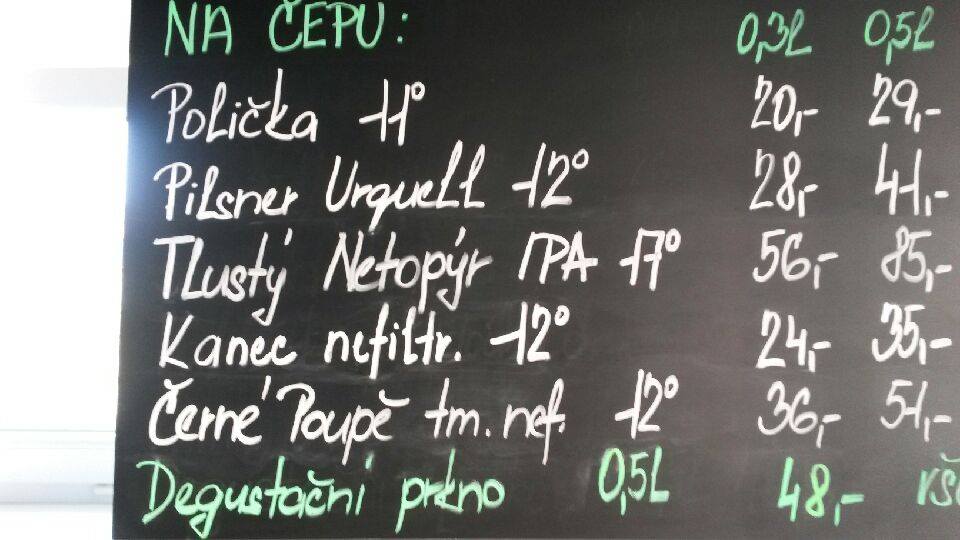 NA ČEPU: 0,3L 0,5L
Polička 11° 20,- 29,-
Pilsner Urquell 12° 28,- 41,-
Tlustý Netopýr IPA 17° 56,- 85,-
Kanec nefiltr. 12° 24,- 35,-
Černé Poupě tm. nef. 12° 36,- 51,-
Degustační prkno 0,5L 48,-